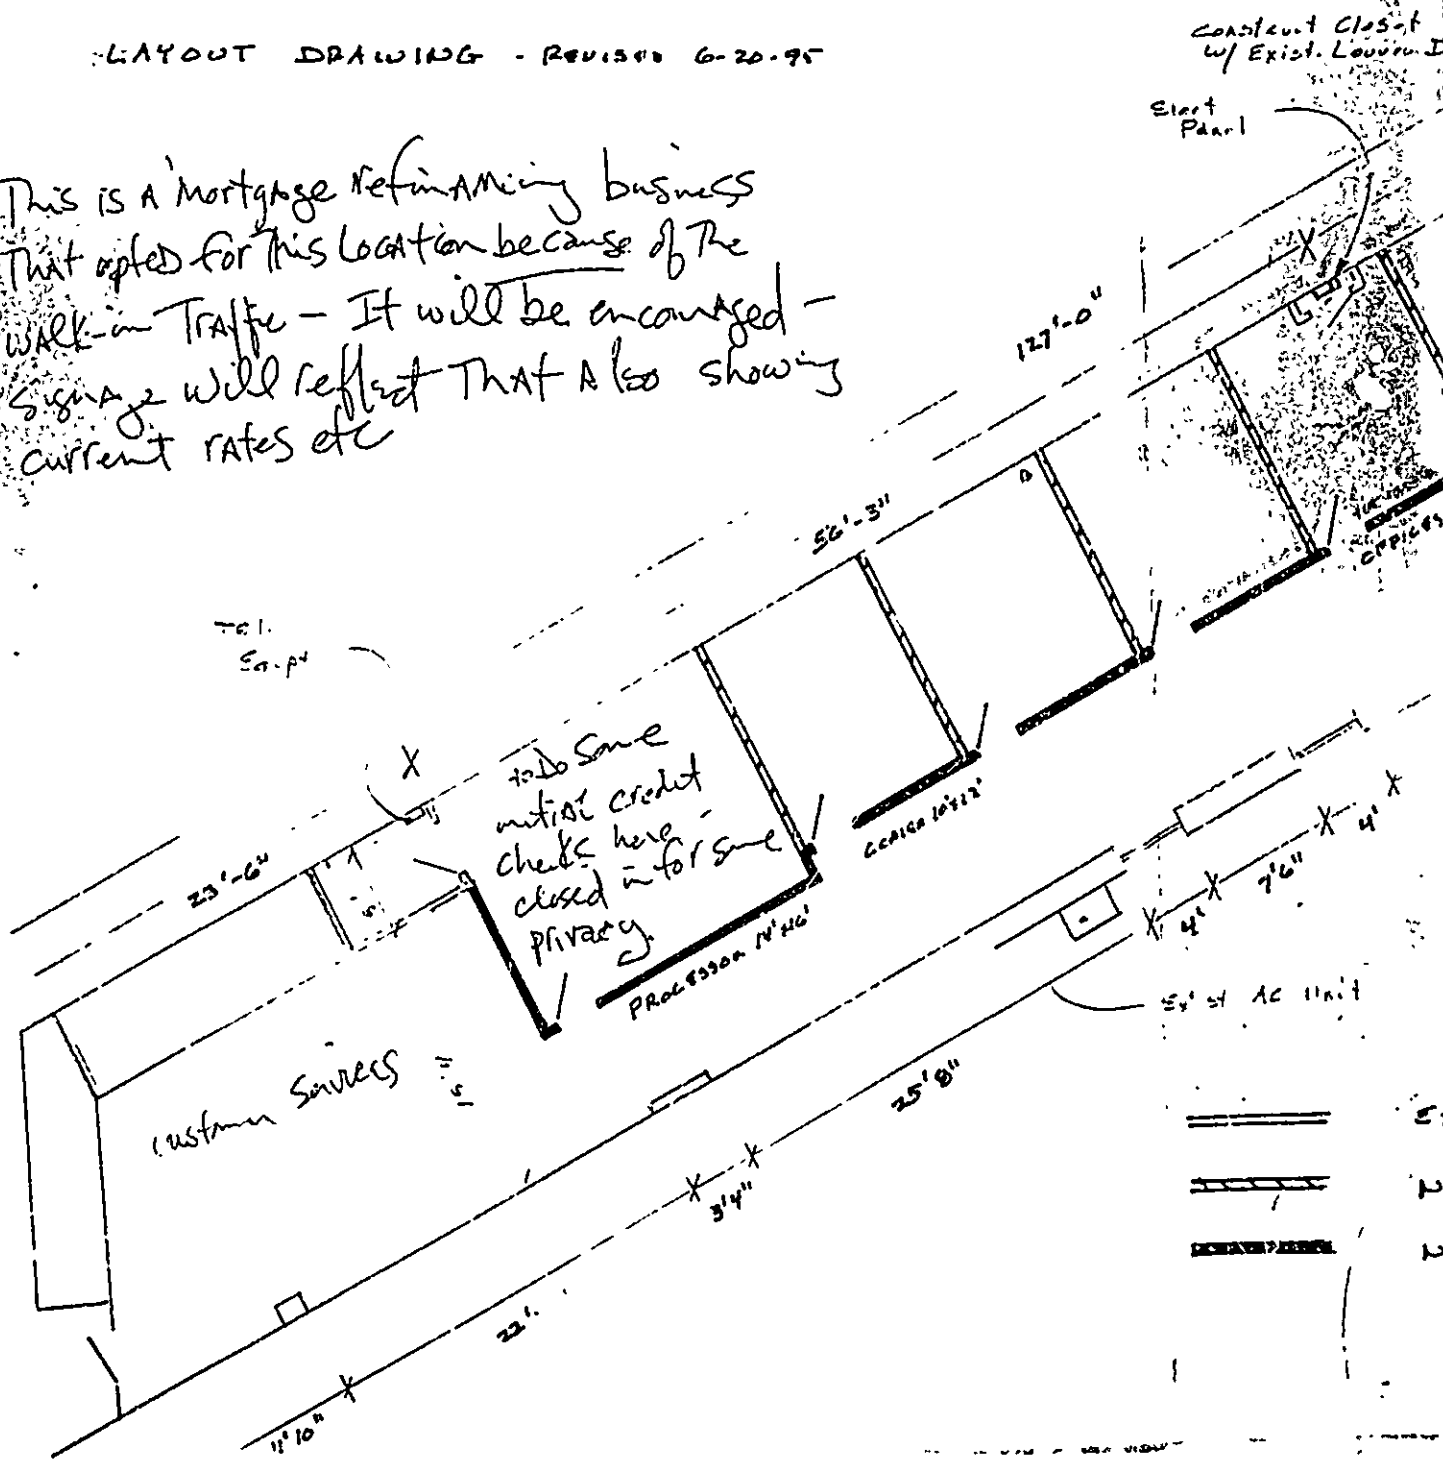 LAYOUT DRAWING - REVISED 6-20-95
Construct Closet
w/ Exist. Louver
Elect
Panel
This is A Mortgage refinancing business
That opted for This Location because of The
walk-in Traffic - It will be encouraged -
signage will reflect That Also showing
current rates etc
127'-0"
56'-3"
Tel.
to Do Some
initial credit
checks here -
closed in for some
privacy.
23'-6"
OFFICES
10'x12'
PROCESSOR 14'x16'
customer Services
Exist AC Unit
4'
7'6"
4'
25'8"
3'4"
22'
11'10"